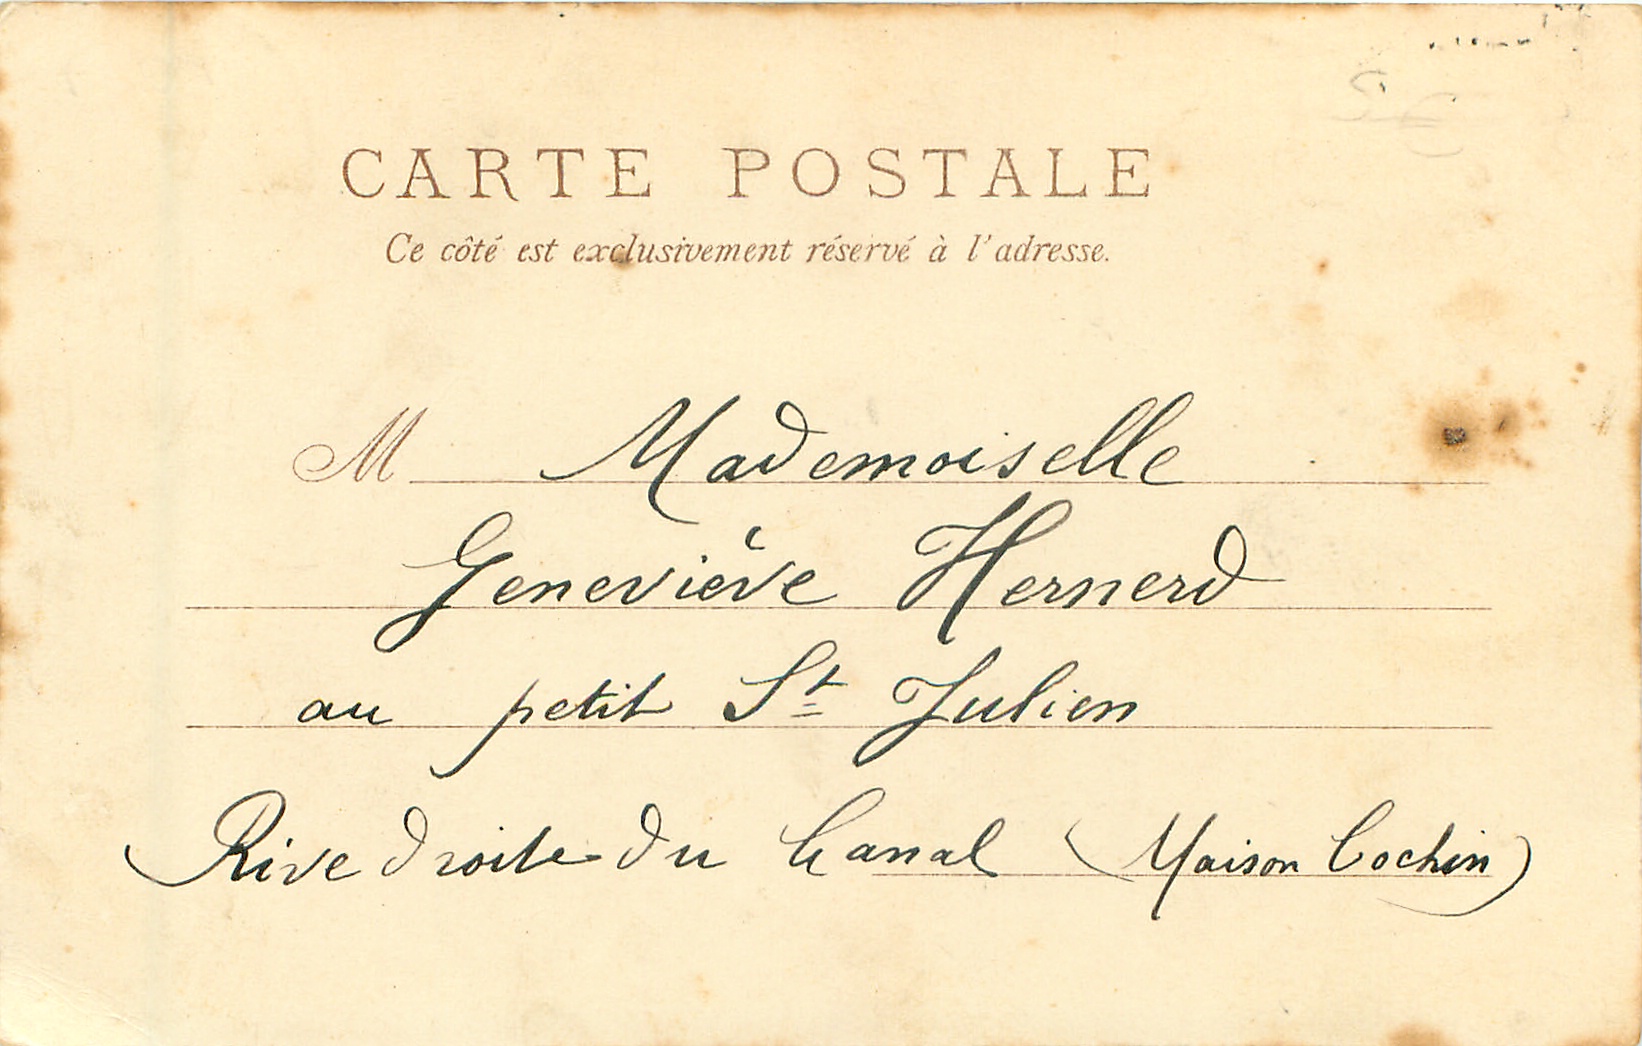 CARTE POSTALE
Ce côté est exclusivement réservé à l'adresse.
M Mademoiselle
Geneviève Hernerd
au petit St Julien
Rive droite du Canal (Maison Cochin)